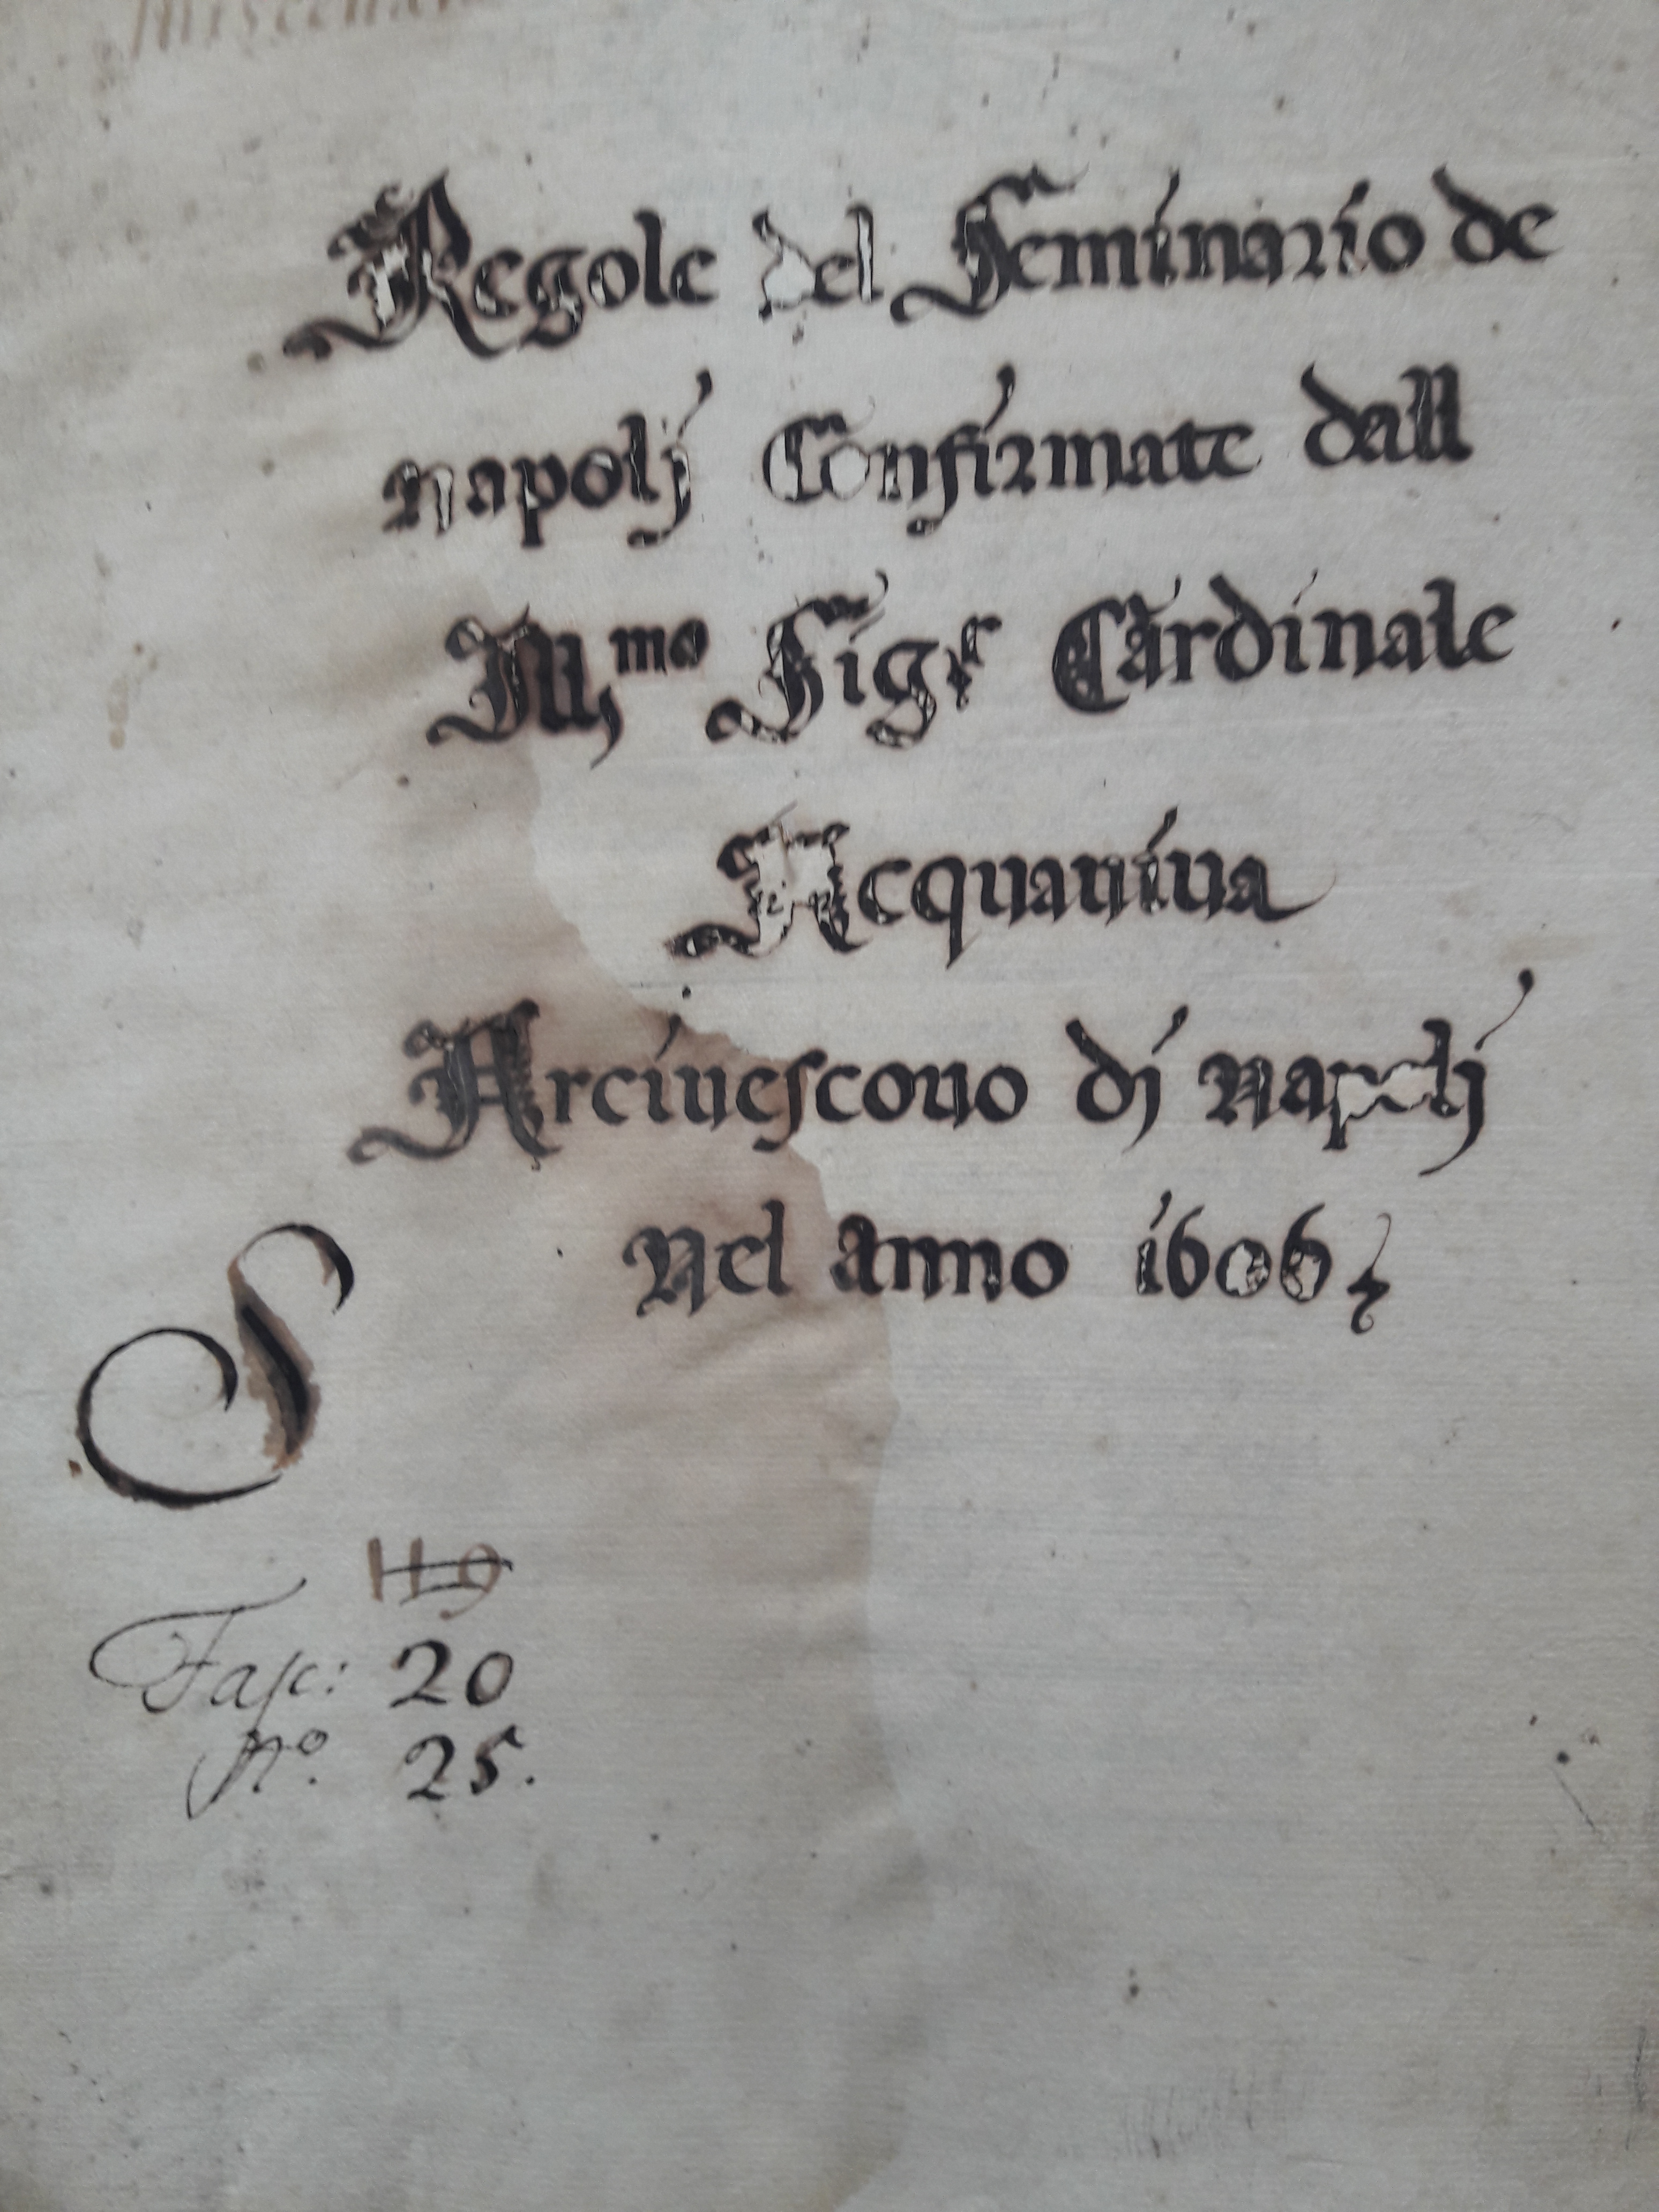 Regole del Seminario de
napolj Confirmate dall
Ill.mo Sig.r Cardinale
Acquaviua
Arciuescouo dj napolj
Nel anno 1606
S
119
Fasc: 20
nº. 25.